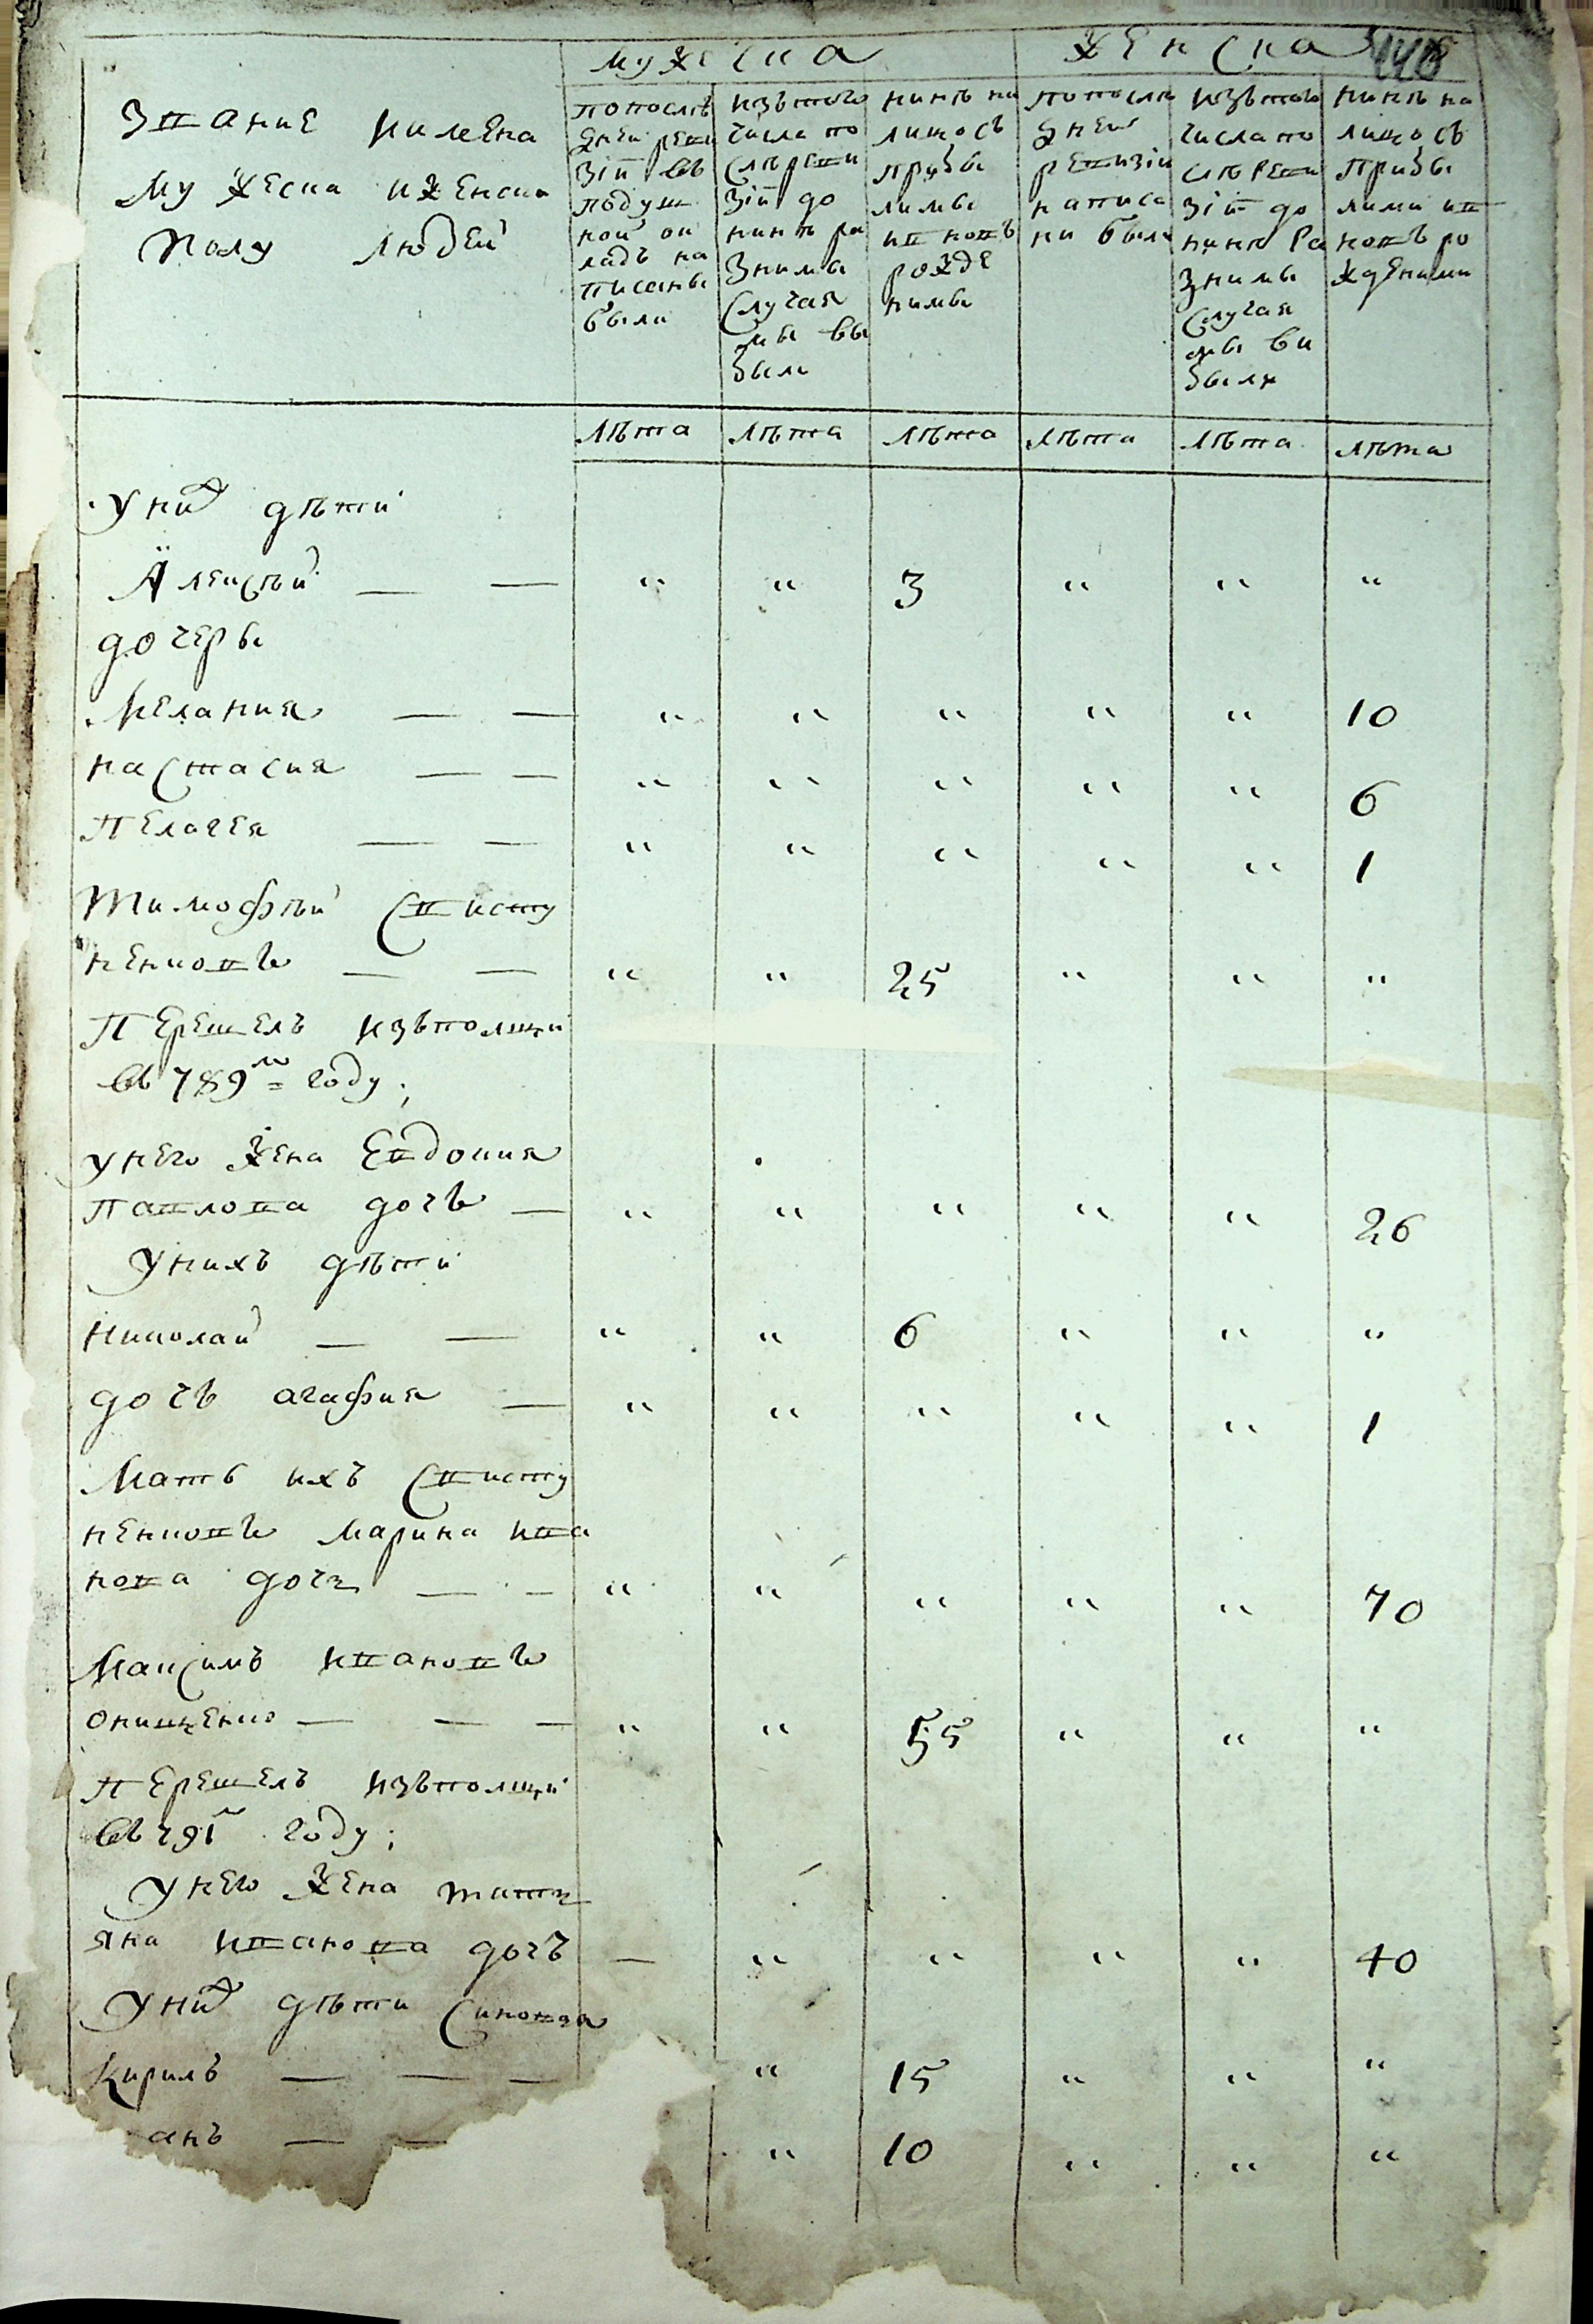 мужеска женска 448
Звание и имена
мужеска и женска
полу людей
по послѣ
дней реви
зіи въ
подуш
ной ок
ладъ на
писаны
были
изъ того
числа по
слѣ реви
зіи до
нинѣ ра
зными
случая
ми вы
были
нинѣ на
лицо съ
прибы
лими
и вновь
рожде
ними
по послѣ
дней
ревизіи
написа
ни были
изъ того
числа по
слѣ реви
зіи до
нинѣ ра
зними
случая
ми ви
были
нинѣ на
лицо съ
прибы
лими и в
новъ ро
ждеными
лѣта лѣта лѣта лѣта лѣта лѣта
У них дѣти
Алексѣй — — " " 3 " " "
дочеры
Мелания — — " " " " " 10
настасия — — " " " " " 6
Пелагея — — " " " " " 1
Тимофѣй Свисту
ненковъ — — " " 25 " " "
Перешелъ изъ полщи
въ 789м = году ;
у него жена Евдокия
павлова дочь — " " " " " 26
У нихъ дѣти
николай — — " " 6 " " "
дочъ агафия — " " " " " 1
Мать ихъ Свисту
ненковъ Марина ива
нова дочь — — " " " " " 70
Максимъ ивановъ
онищенко — — — " " 55 " " "
перешелъ изъ полщи
въ 791м году ;
У него жена тать
яна иванова дочъ — " " " " 40
У них дѣти синовья
Кирилъ — — — " 15 " " "
анъ — — " 10 " " "